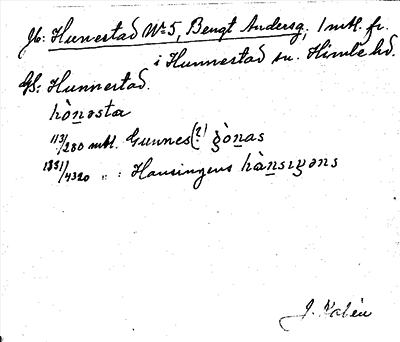 Jb: Hunnestad No 5, Bengt Andersg, 1 mtl. fr.
i Hunnestad sn. Himle hd.
GS: Hunnestad.
hòn̲əsta
113/280 mtl. Gunnes(?) gòn̲as
1331/4320 " : Hansingens hàn̲sıŋəns
J. Kalén